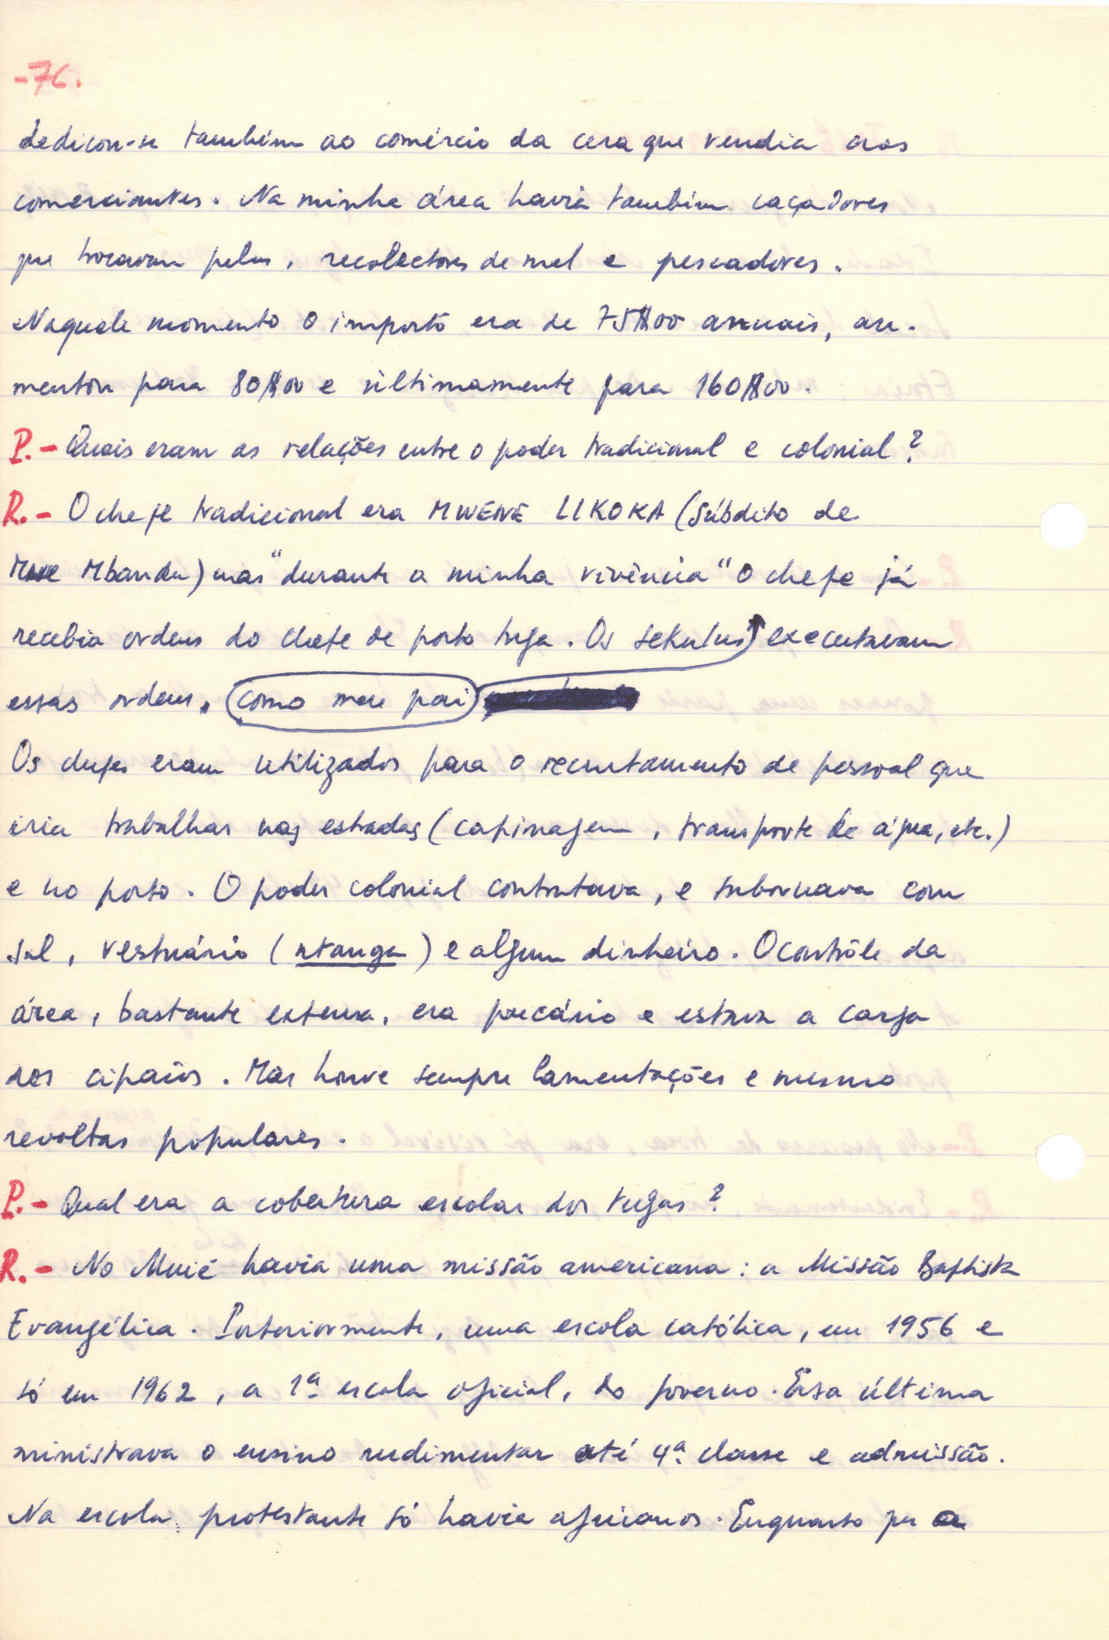 -76.
dedicou-se também ao comércio da cera que vendia aos
comerciantes. Na minha área havia também caçadores
que trocavam peles, recolectores de mel e pescadores.
Naquele momento o imposto era de 75$00 anuais, au-
mentou para 80$00 e ùltimamente para 160$00.
P.- Quais eram as relações entre o poder tradicional e colonial?
R.- O chefe tradicional era MWENE LIKOKA (Súbdito de
Mwe Mbandu) mas "durante a minha vivência" o chefe já
recebia ordens do chefe de posto tuga. Os sekulus executavam
essas ordens, como meu pai
Os chefes eram utilizados para o recrutamento de pessoal que
iria trabalhar nas estradas (capinagem, transporte de água, etc.)
e no posto. O poder colonial contratava, e subornava com
sal, vestuário (ntanga) e algum dinheiro. O contrôle da
área, bastante extensa, era precário e estava a cargo
dos cipaios. Mas houve sempre lamentações e mesmo
revoltas populares.
P.- Qual era a cobertura escolar dos tugas?
R.- No Muié havia uma missão americana: a Missão Baptista
Evangélica. Posteriormente, uma escola católica, em 1956 e
só em 1962, a 1ª escola oficial, do governo. Essa última
ministrava o ensino rudimentar até 4ª classe e admissão.
Na escola protestante só havia africanos. Enquanto que a